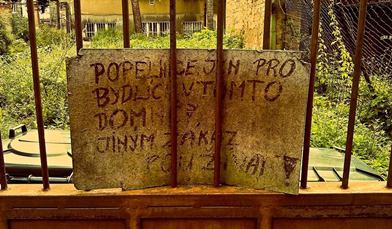 POPELNICE JEN PRO
BYDLÍCÍ V TOMTO
DOMĚ
JINÝM ZÁKAZ
POUŽÍVAT